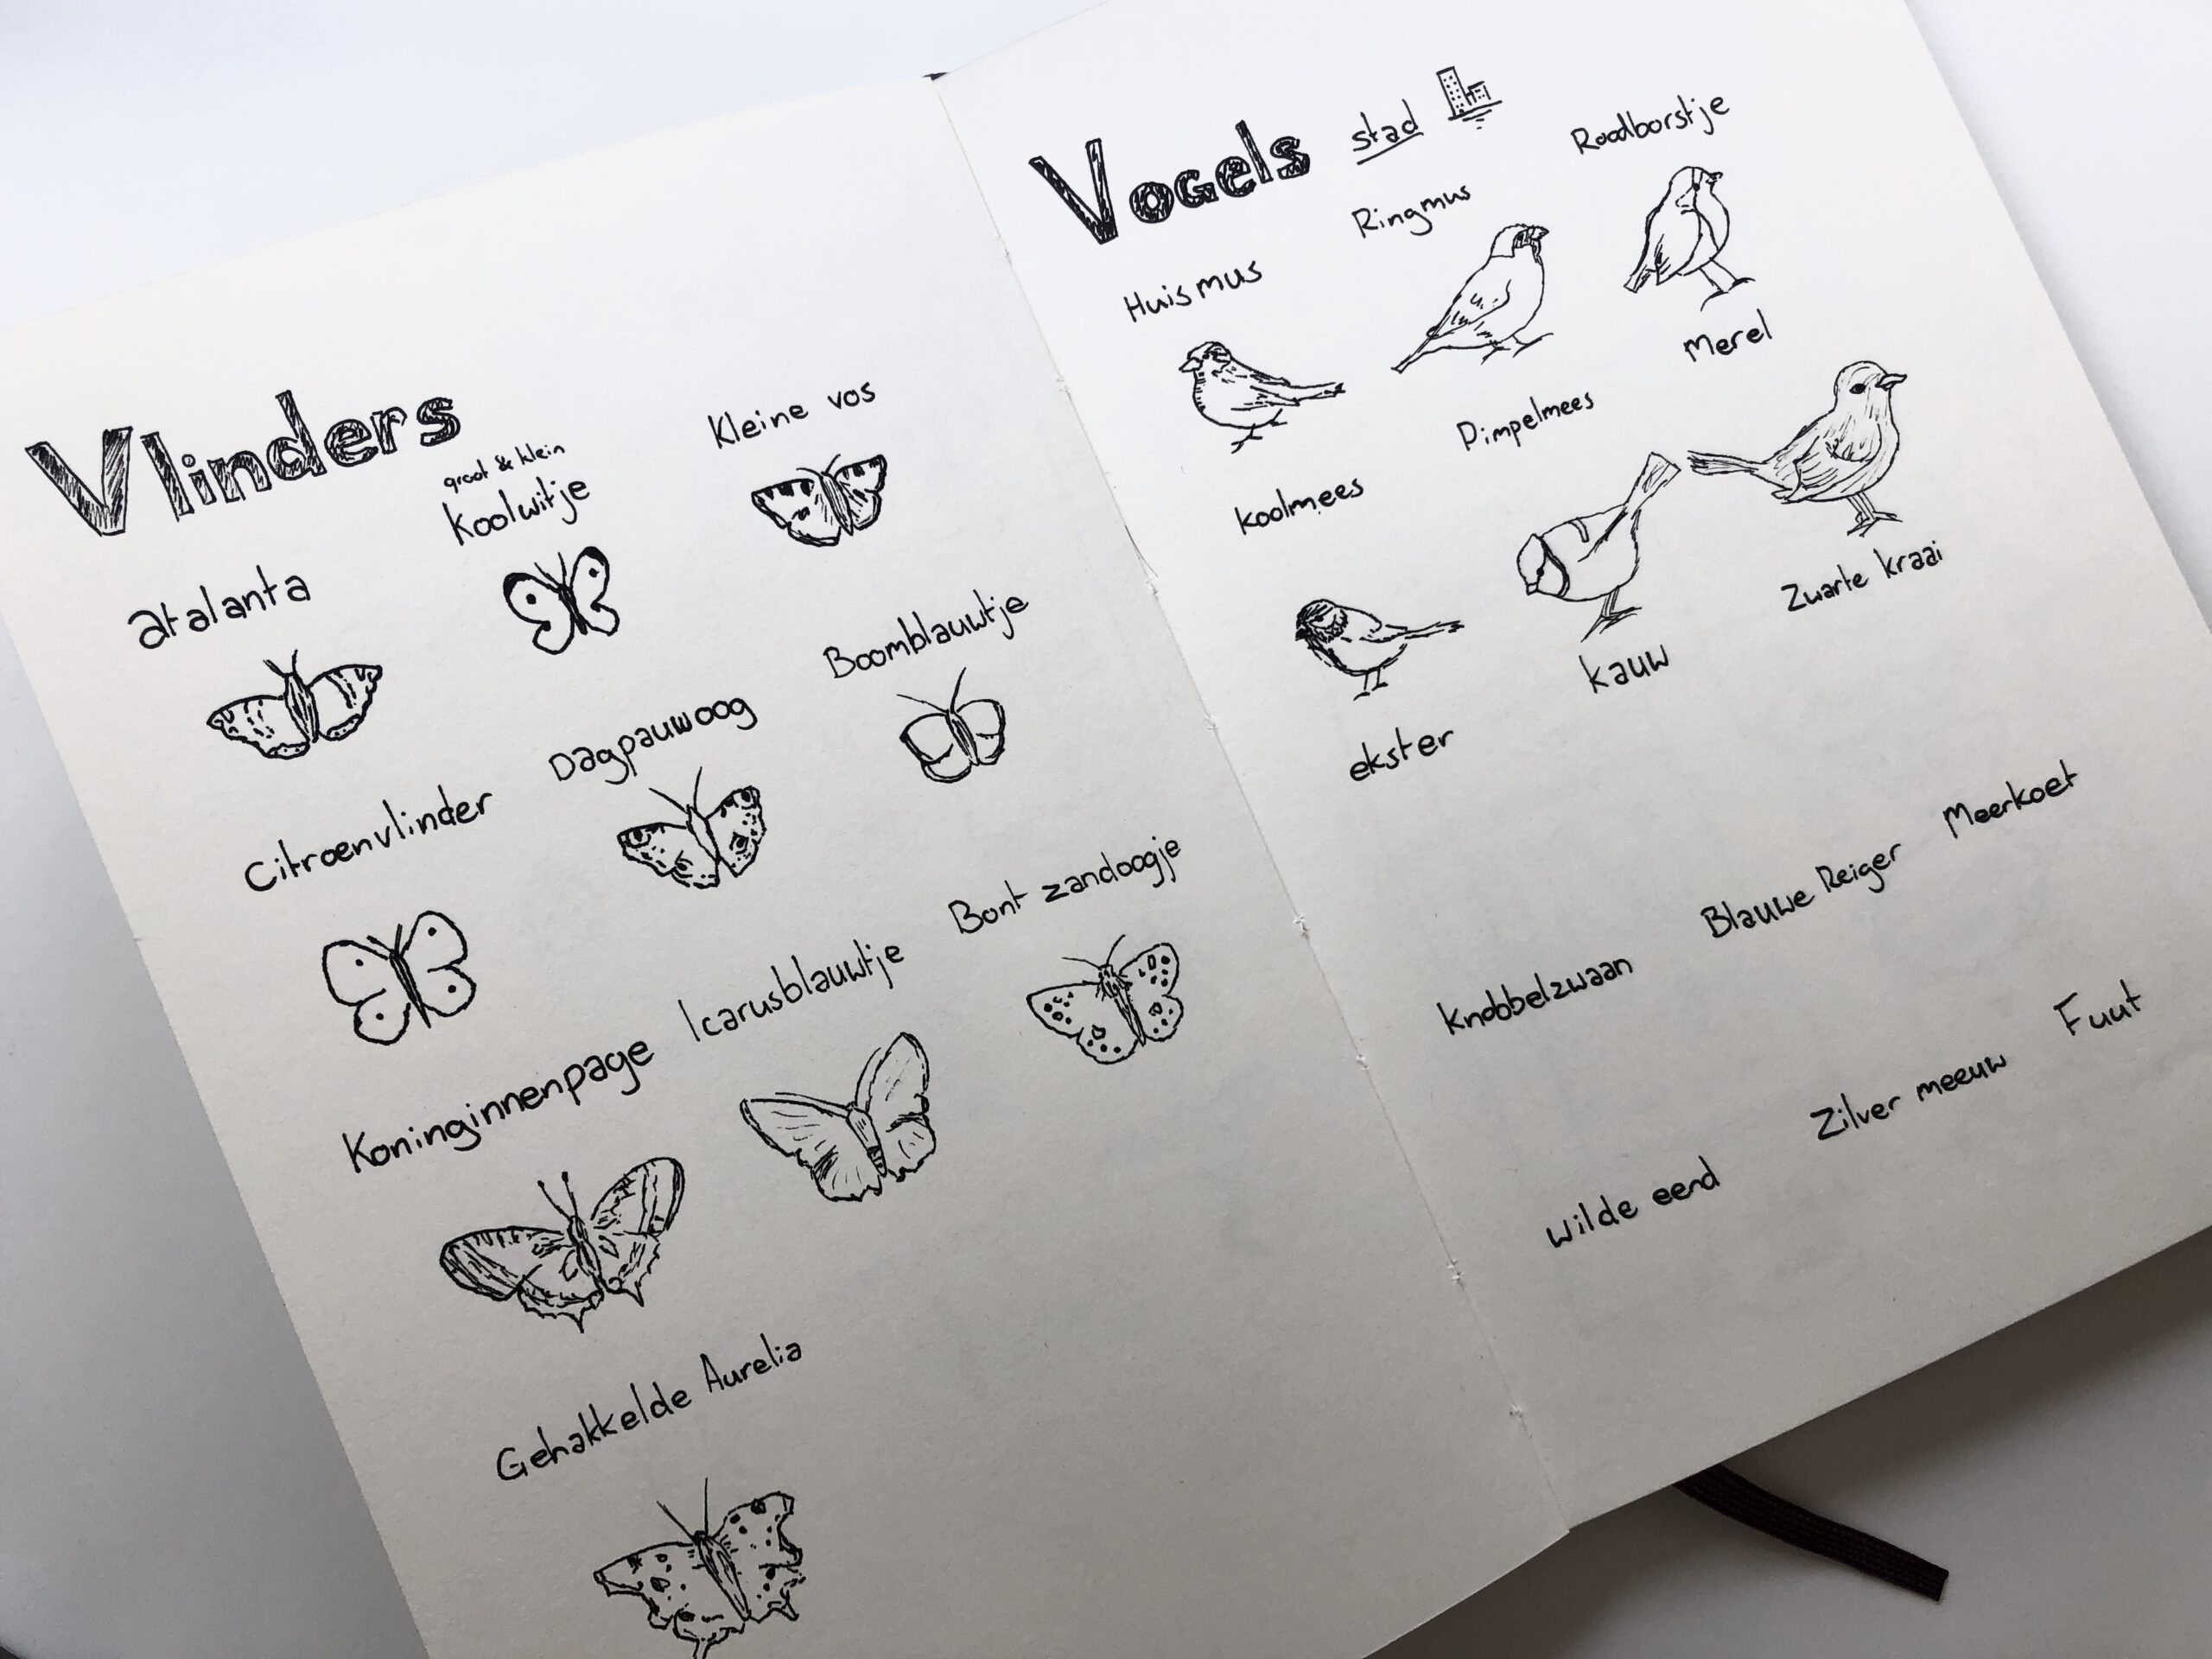 Vlinders
groot & klein
Koolwitje
Kleine vos
atalanta
Boomblauwtje
Dagpauwoog
Citroenvlinder
Bont zandoogje
Icarusblauwtje
Koninginnenpage
Gehakkelde Aurelia
Vogels stad
Roodborstje
Ringmus
Huismus
Merel
Pimpelmees
Koolmees
Zwarte kraai
Kauw
ekster
Meerkoet
Blauwe Reiger
Knobbelzwaan
Fuut
Zilver meeuw
Wilde eend